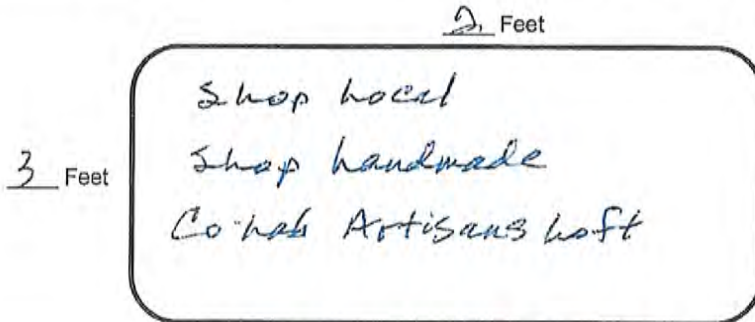 2 Feet
3 Feet
Shop Local
Shop handmade
Co-Lab Artisans Loft